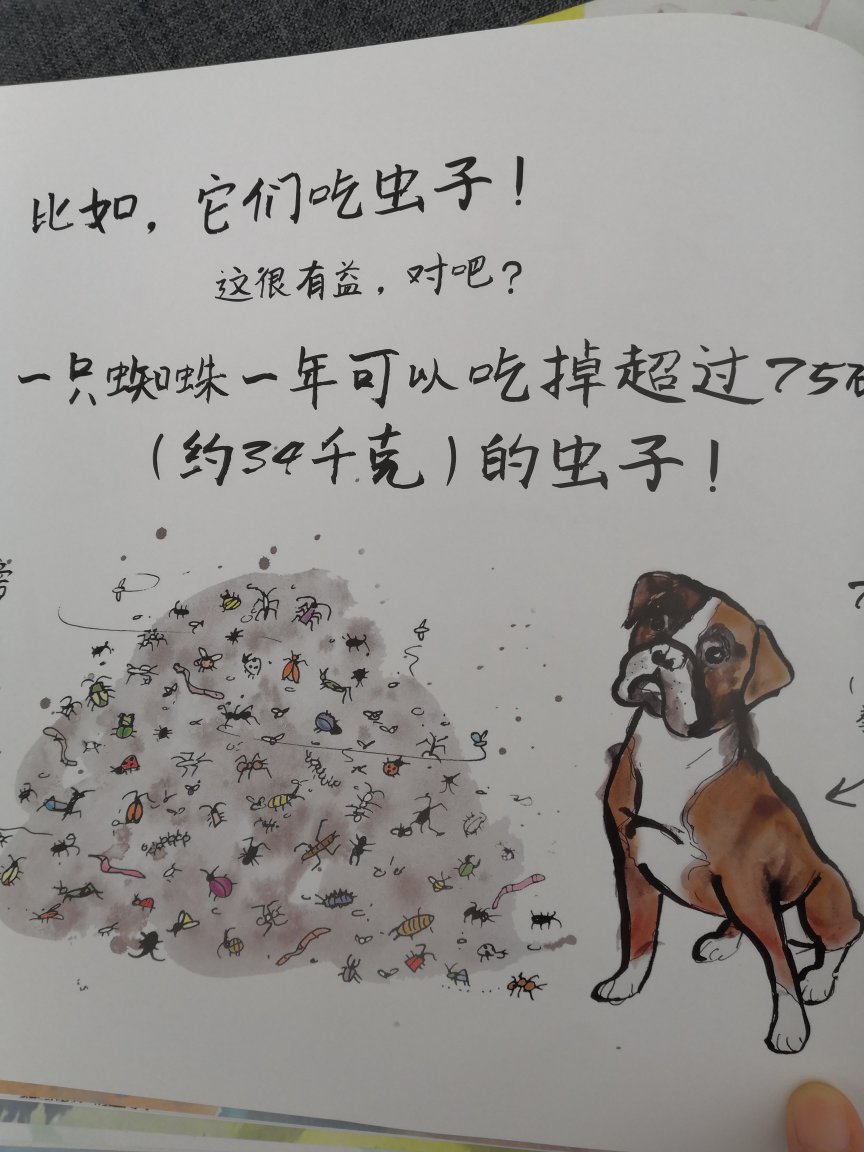 比如，它们吃虫子！
这很有益，对吧？
一只蜘蛛一年可以吃掉超过75
（约34千克）的虫子！